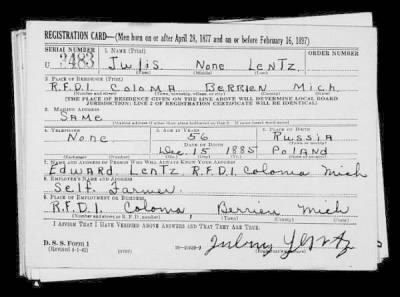 REGISTRATION CARD—(Men born on or after April 28, 1877 and on or before February 16, 1897)
SERIAL NUMBER 1. NAME (Print) ORDER NUMBER
U 2483 None Lentz
2. PLACE OF RESIDENCE (Print)
R.F.D.1. Coloma Berrien Mich.
(Number and street) (Town, township, village, or city) (County) (State)
[THE PLACE OF RESIDENCE GIVEN ON THE LINE ABOVE WILL DETERMINE LOCAL BOARD
JURISDICTION; LINE 2 OF REGISTRATION CERTIFICATE WILL BE IDENTICAL]
3. MAILING ADDRESS
Same
[Mailing address if other than place indicated on line 2. If same insert word same]
4. TELEPHONE 5. AGE IN YEARS 6. PLACE OF BIRTH
None 56 Russia
DATE OF BIRTH (Town or county)
Dec. 15 1885 Poland
(Exchange) (Number) (Mo.) (Day) (Yr.) (State or country)
7. NAME AND ADDRESS OF PERSON WHO WILL ALWAYS KNOW YOUR ADDRESS
Edward Lentz R.F.D.1. Coloma Mich
8. EMPLOYER'S NAME AND ADDRESS
Self. Farmer.
9. PLACE OF EMPLOYMENT OR BUSINESS
R.F.D.1. Coloma, Berrien Mich
(Number and street or R. F. D. number) (Town) (County) (State)
I AFFIRM THAT I HAVE VERIFIED ABOVE ANSWERS AND THAT THEY ARE TRUE.
D. S. S. Form 1
(Revised 4-1-42)